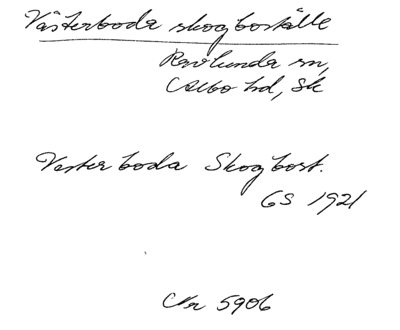 Västerboda skogboställe
Ravlunda sn,
Albo hd, Sk
Vesterboda Skogbost.
GS 1921
CNr 5906